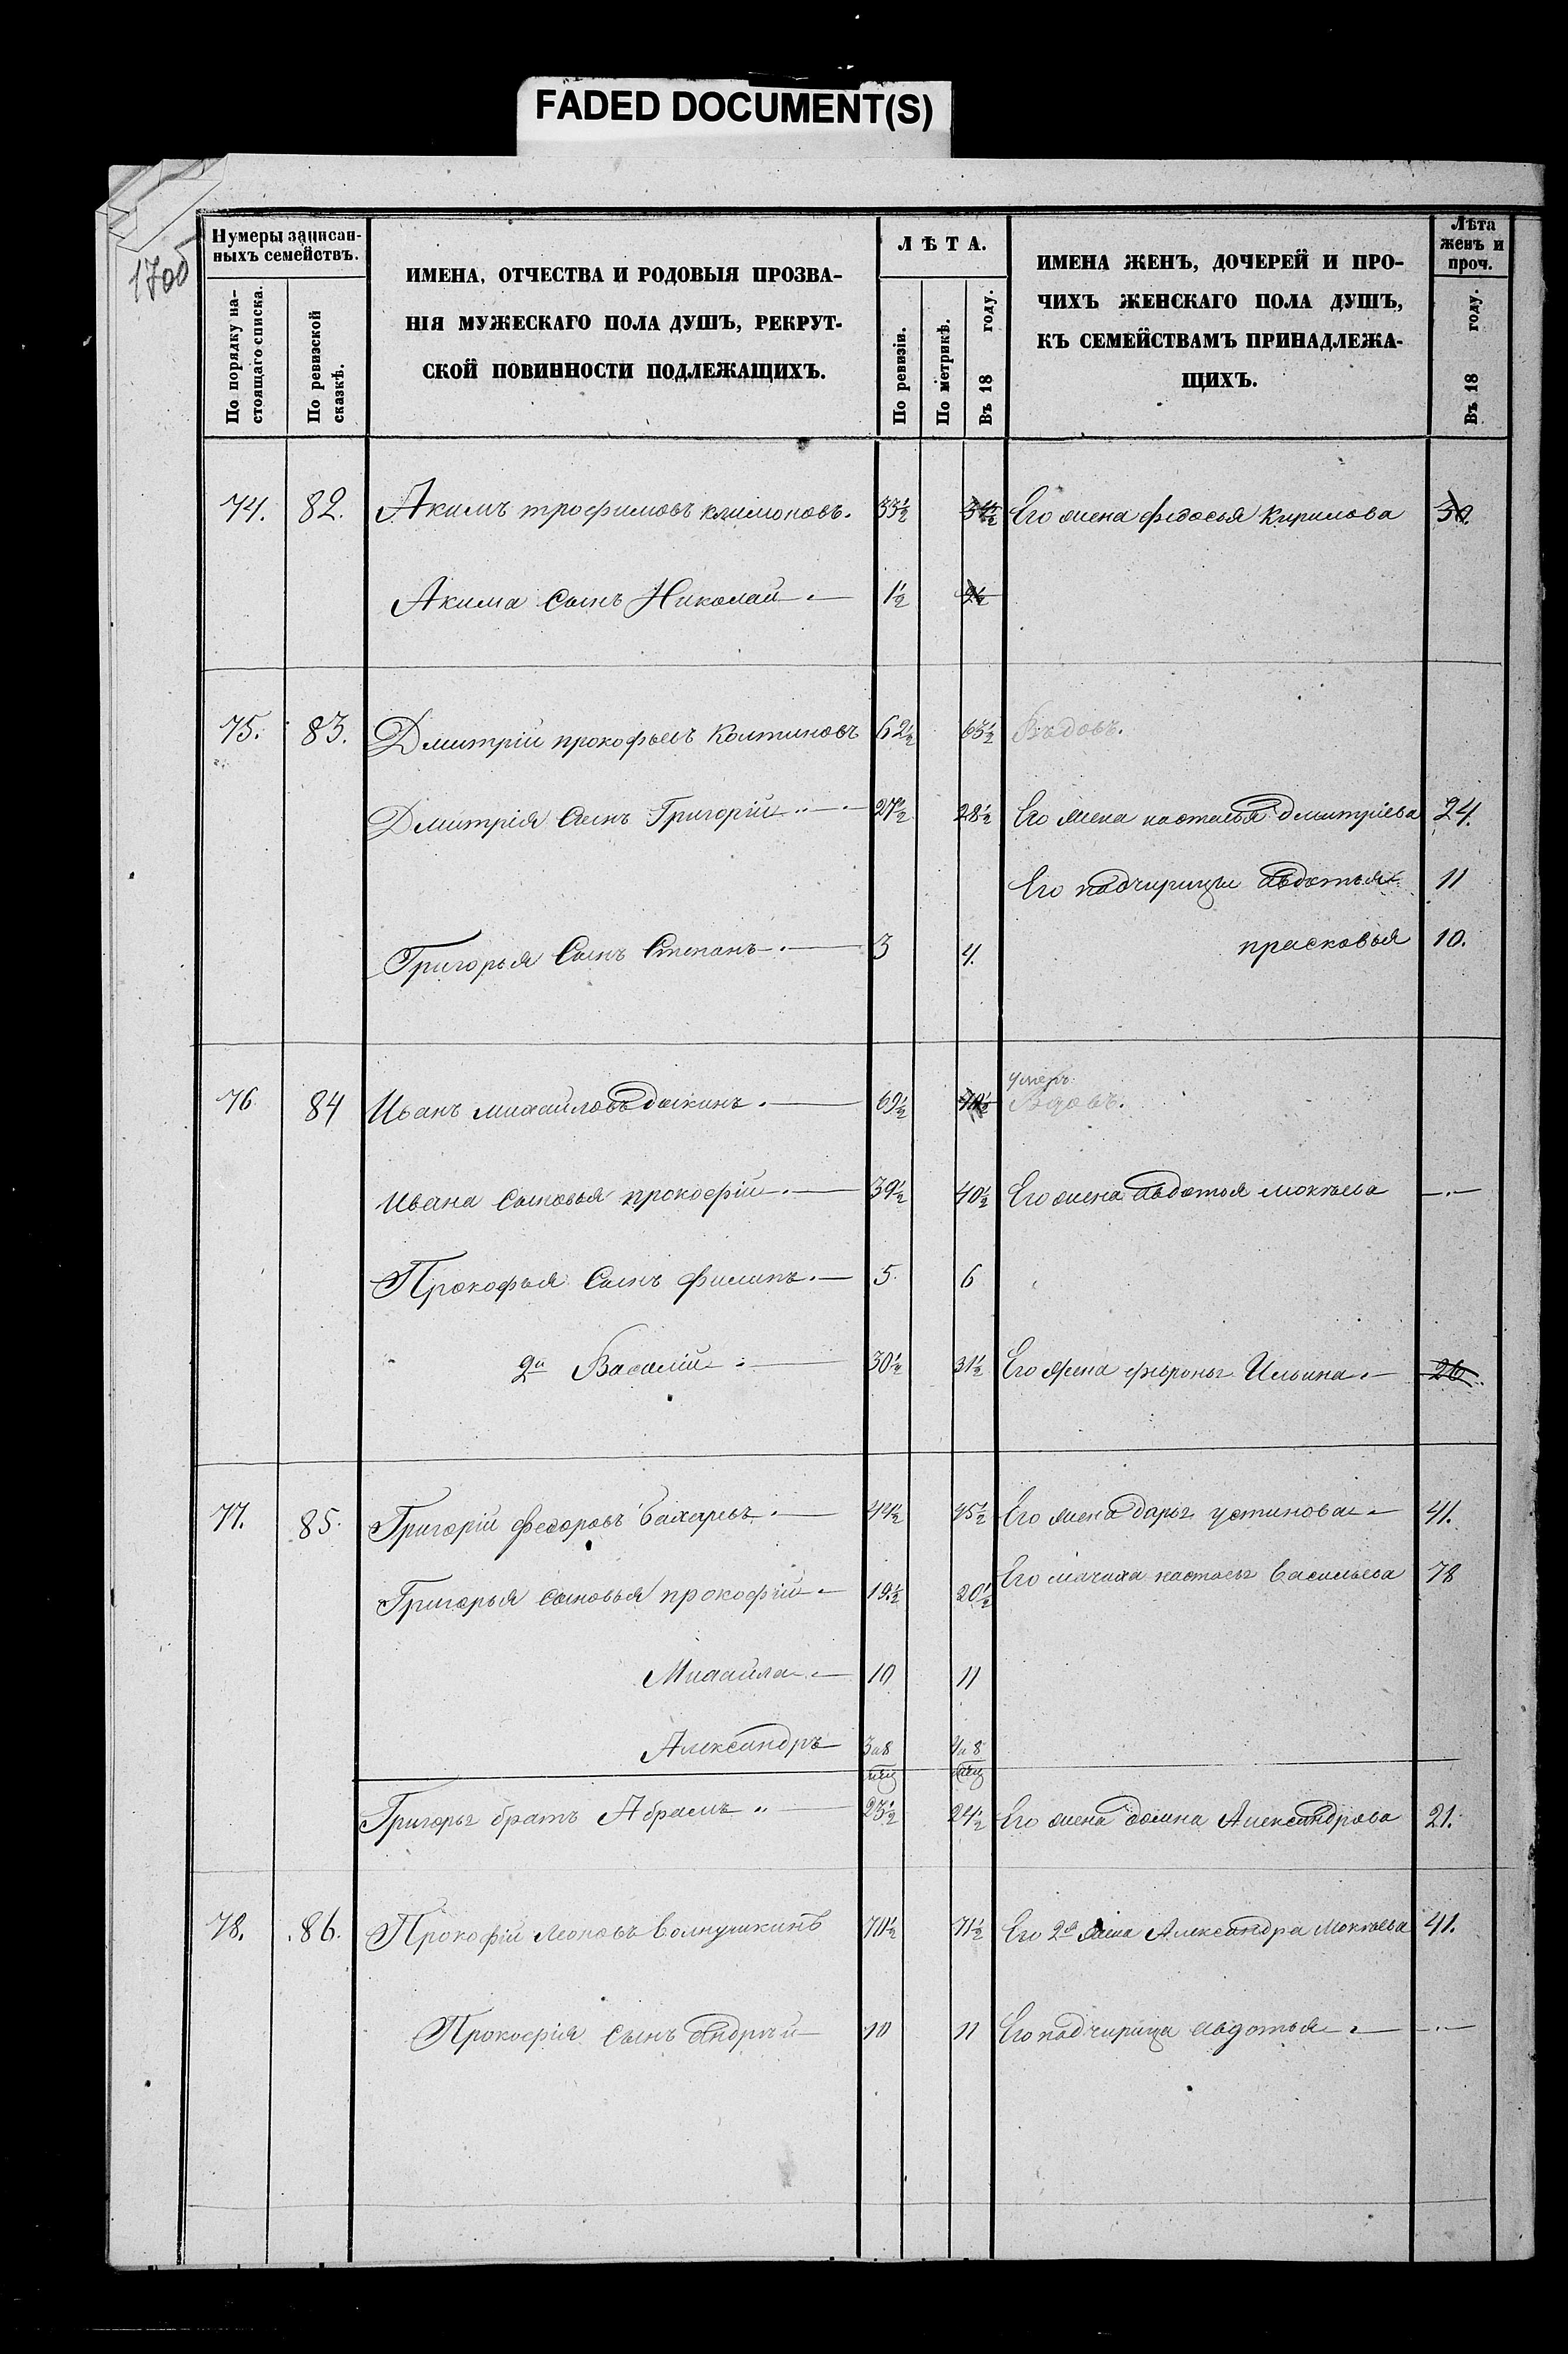 FADED DOCUMENT(S)
1700
Нумеры записан-
ныхъ семействъ.
По порядку на-
стоящаго списка.
По ревизской
сказкѣ.
ИМЕНА, ОТЧЕСТВА И РОДОВЫЯ ПРОЗВА-
НІЯ МУЖЕСКАГО ПОЛА ДУШЪ, РЕКРУТ-
СКОЙ ПОВИННОСТИ ПОДЛЕЖАЩИХЪ.
ЛѢТА.
По ревизіи.
По метрикѣ.
Въ 18 году.
ИМЕНА ЖЕНЪ, ДОЧЕРЕЙ И ПРО-
ЧИХЪ ЖЕНСКАГО ПОЛА ДУШЪ,
КЪ СЕМЕЙСТВАМЪ ПРИНАДЛЕЖА-
ЩИХЪ.
Лѣта
женъ и
проч.
Въ 18 году.
74. 82. Акимъ трофимовъ климоновъ. 33½ 34½ Его жена федосья Кирилова 30.
Акима Сынъ Николай 1½ 2½
75. 83. Дмитрій прокофьевъ Колтиновъ 62½ 63½ Въдовъ.
Дмитрія Сынъ Григорій 27½ 28½ Его жена настасья дмитріева 24.
Его падчирицы авдотья 11
Григорья Сынъ Степанъ 3 4. прасковья 10.
умеръ
76. 84 Иванъ михайловъ 69½ 70½ Вдовъ.
Ивана сыновья прокофій 39½ 40½ Его жена авдотья мокѣева
Прокофья Сынъ филипъ. 5. 6
2й Василій 30½ 31½ Его жена Ильина. 26.
77. 85. Григорій федоровъ бахаревъ 44½ 45½ Его жена дарья устинова 41.
Григорья сыновья прокофій 19½ 20½ Его мачиха настасья васильева 78
Михайла 10 11
Александръ 3 и 8 мец 4 и 8 мец
Григорья братъ Абрамъ 23½ 24½ Его жена домна Александрова 21.
78. 86. Прокофій Леоновъ волнушкинъ 70½ 71½ Его 2я жена Александра Мокѣева 41.
Прокофія сынъ андрѣй 10 11 Его падчирица авдотья